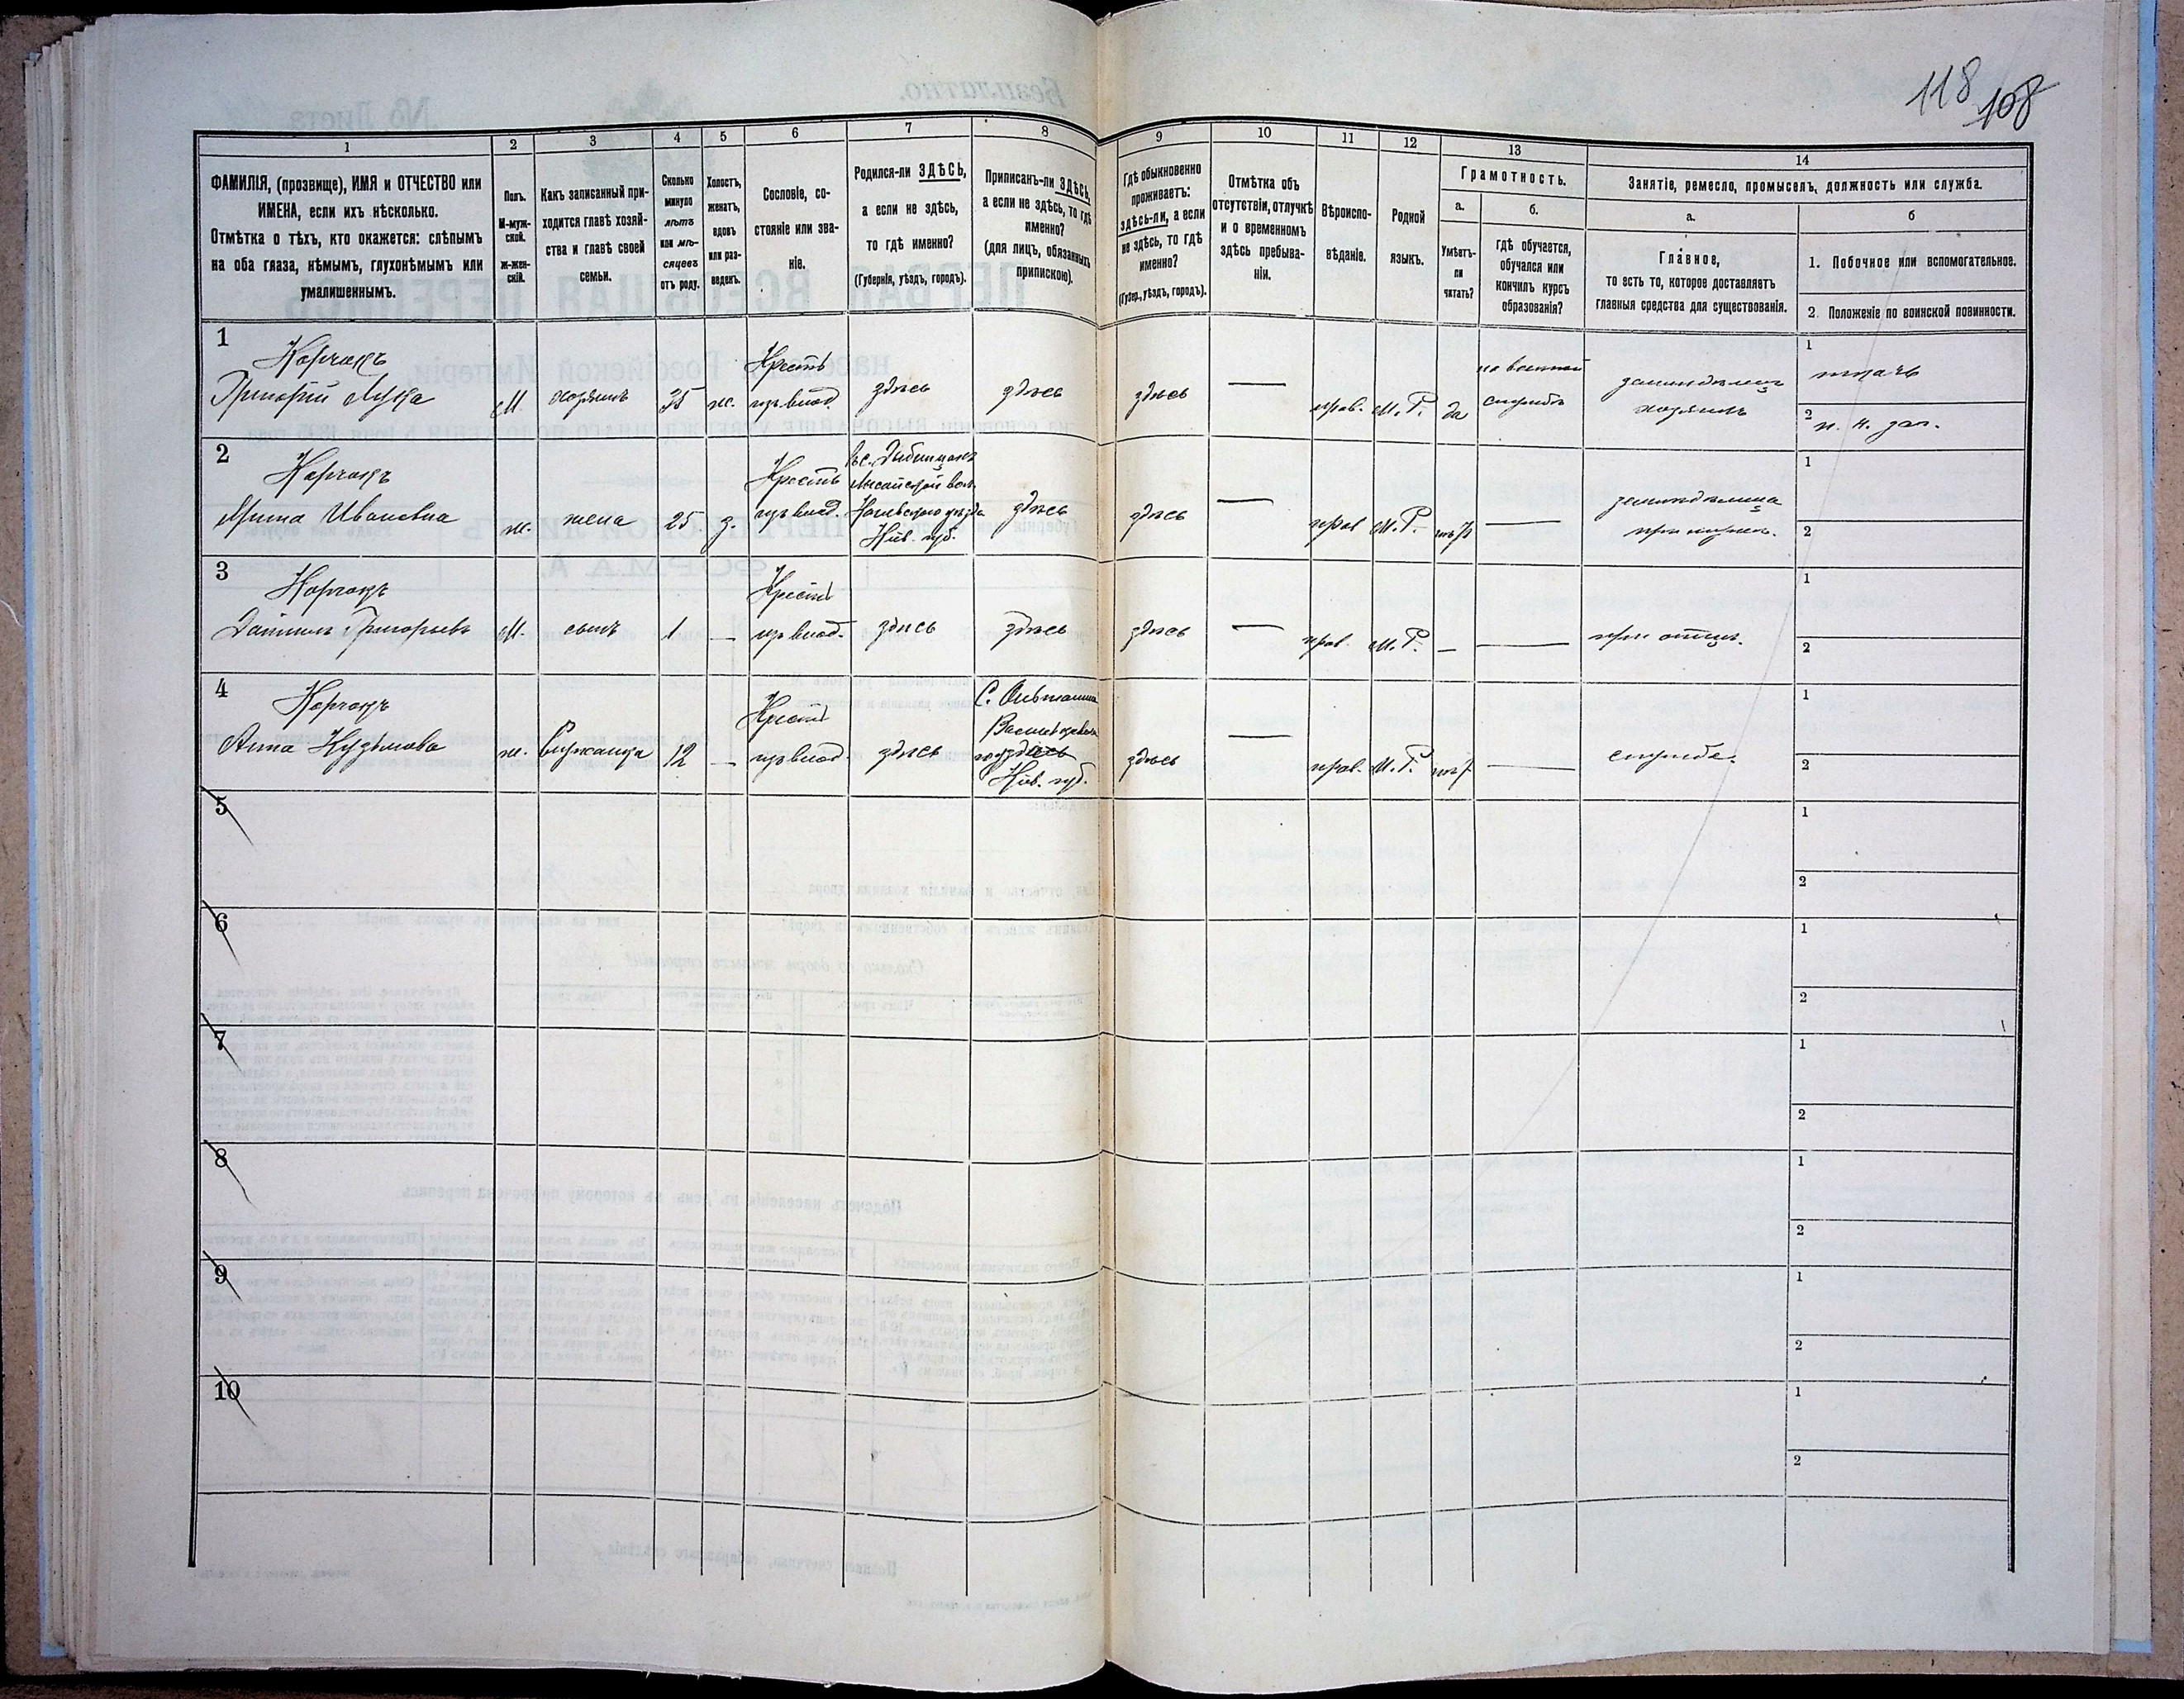 118
108
1
2
3
4
5
6
7
8
9
10
11
12
13
14
ФАМИЛІЯ, (прозвище), ИМЯ и ОТЧЕСТВО или
ИМЕНА, если ихъ нѣсколько.
Отмѣтка о тѣхъ, кто окажется: слѣпымъ
на оба глаза, нѣмымъ, глухонѣмымъ или
умалишеннымъ.
Полъ.
М-муж-
ской.
Ж-жен-
скій.
Какъ записанный при-
ходится главѣ хозяй-
ства и главѣ своей
семьи.
Сколько
минуло
лѣтъ
или мѣ-
сяцевъ
отъ роду.
Холостъ,
женатъ,
вдовъ
или раз-
веденъ.
Сословіе, со-
стояніе или зва-
ніе.
Родился-ли ЗДѢСЬ,
а если не здѣсь,
то гдѣ именно?
(Губернія, уѣздъ, городъ).
Приписанъ-ли ЗДѢСЬ,
а если не здѣсь, то гдѣ
именно?
(для лицъ, обязанныхъ
припискою).
Гдѣ обыкновенно
проживаетъ:
здѣсь-ли, а если
не здѣсь, то гдѣ
именно?
(Губер., уѣздъ, городъ).
Отмѣтка объ
отсутствіи, отлучкѣ
и о временномъ
здѣсь пребыва-
ніи.
Вѣроиспо-
вѣданіе.
Родной
языкъ.
Грамотность.
а.
Умѣетъ-
ли
читать?
б.
гдѣ обучается,
обучался или
кончилъ курсъ
образованія?
Занятіе, ремесло, промыселъ, должность или служба.
а.
Главное,
то есть то, которое доставляетъ
главныя средства для существованія.
б
1. Побочное или вспомогательное.
2. Положеніе по воинской повинности.
1
Корчакъ
Григорій Лука
М.
хозяинъ
35
ж.
Кресть
изъ влад.
здѣсь
здѣсь
здѣсь
—
прав.
М. Р.
да
на военной
службѣ
земледѣлец
хозяинъ
1
ткачъ
2
2
Корчакъ
Ивановна
ж.
жена
25
з.
Крестъ
изъ влад.
Кіевскаго уѣзда
Кіев. губ.
здѣсь
здѣсь
—
прав
М. Р.
нѣтъ
—
земледѣлица
при мужѣ.
1
2
3
Корчакъ
Даніилъ Григорьевъ
М.
сынъ
1
—
Крест
изъ влад.
здѣсь
здѣсь
здѣсь
—
прав.
М. Р.
—
—
при отцѣ.
1
2
4
Корчакъ
Анна Кузьмова
ж.
12
—
Крест
изъ влад.
здѣсь
Васильков
Кіев. губ.
здѣсь
—
прав.
М. Р.
нѣт
—
1
2
5
1
2
6
1
2
7
1
2
8
1
2
9
1
2
10
1
2